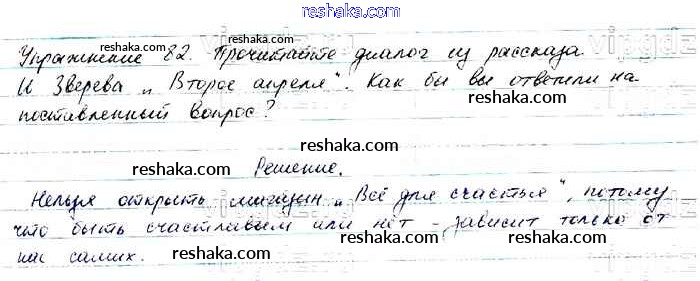 reshaka.com
Упражнение 82. Прочитайте диалог из рассказа
reshaka.com
И Зверева „Второе апреля". Как бы вы ответили на
reshaka.com
reshaka.com
поставленный вопрос?
reshaka.com
reshaka.com
reshaka.com
Решение.
Нельзя открыть магазин „Всё для счастья", потому
reshaka.com
reshaka.com
что быть счастливым или нет - зависит только от
reshaka.com
reshaka.com
нас самих.